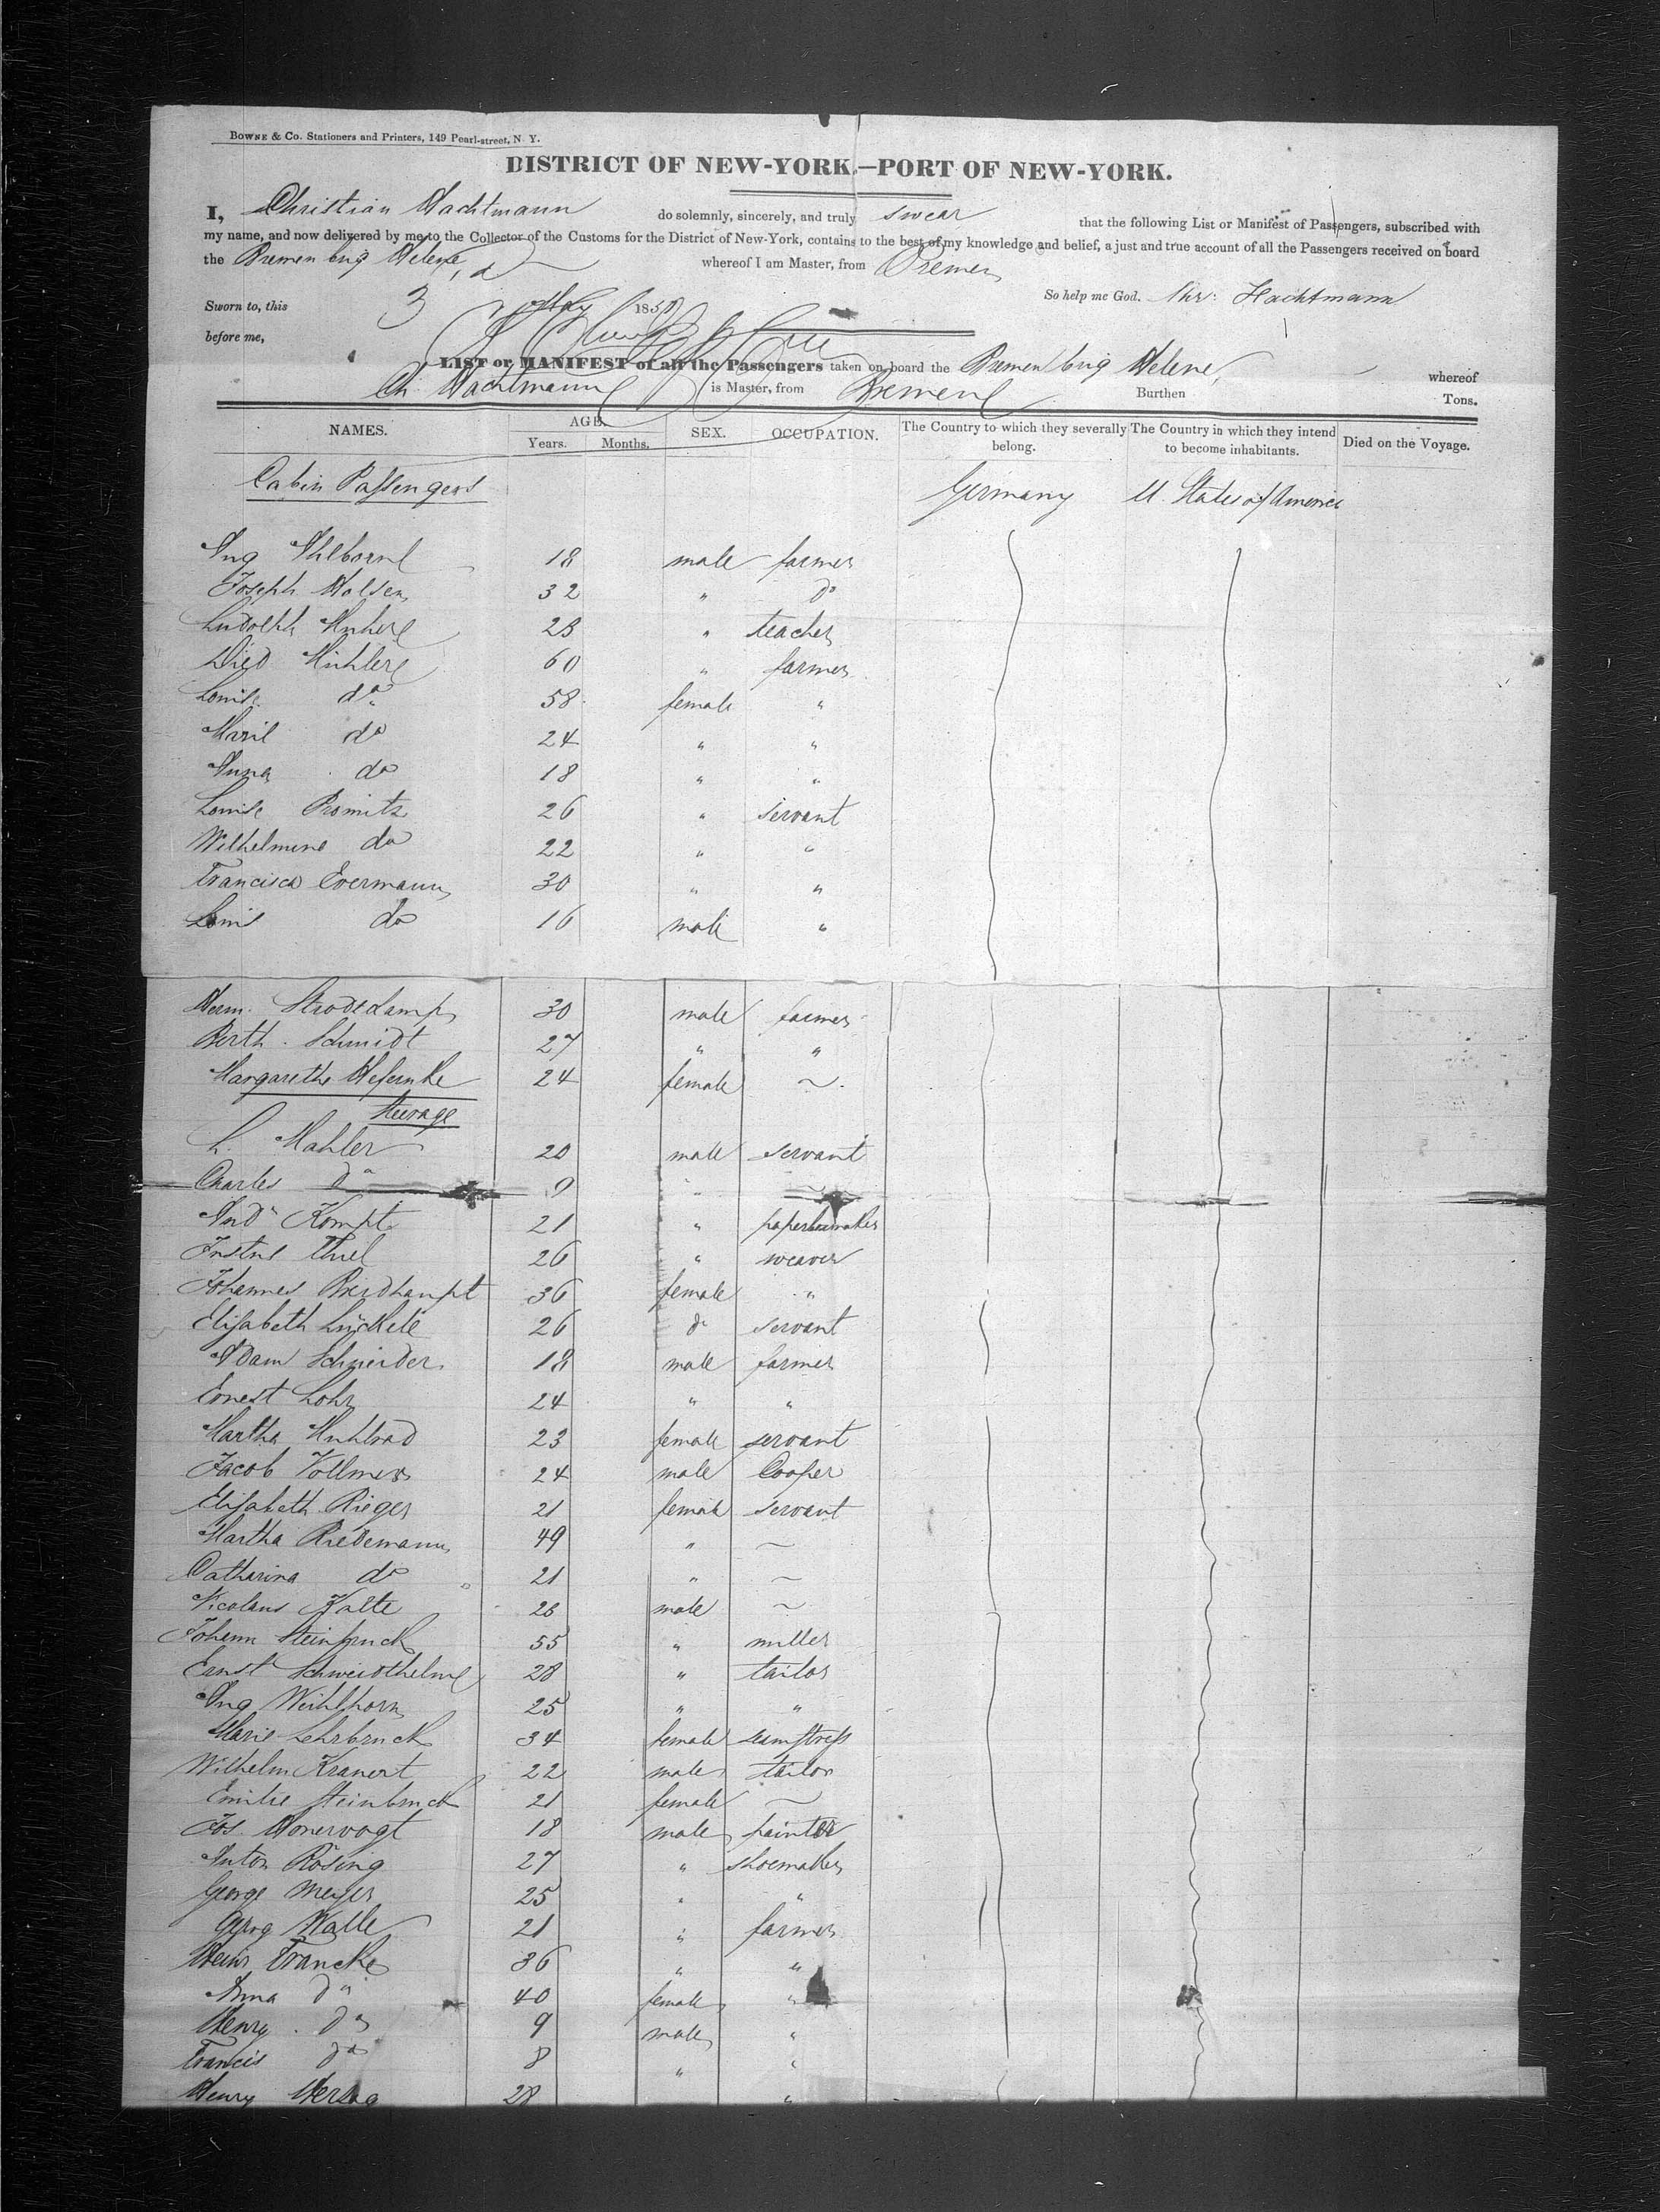 BOWNE & Co. Stationers and Printers, 149 Pearl-street, N. Y.
DISTRICT OF NEW-YORK.—PORT OF NEW-YORK.
I, Christian Hachtmann do solemnly, sincerely, and truly swear that the following List or Manifest of Passengers, subscribed with
my name, and now delivered by me to the Collector of the Customs for the District of New-York, contains to the best of my knowledge and belief, a just and true account of all the Passengers received on board
the Bremen brig Helene, whereof I am Master, from Bremen
So help me God. Chr: Hachtmann
Sworn to, this 3 185
before me,
LIST or MANIFEST of all the Passengers taken on board the Bremen brig Helene, whereof
Ch. Hachtmann is Master, from Bremen Burthen Tons.
NAMES. AGE. Years. Months. SEX. OCCUPATION. The Country to which they severally belong. The Country in which they intend to become inhabitants. Died on the Voyage.
Cabin Passengers Germany U. States of America
Aug Ahlborn 18 male farmer
Joseph 32 " do
Ludolph 23 " teacher
Died 60 " farmer
Louise do 58 female "
Marie do 24 " "
Anna do 18 " "
Louise Promitz 26 " servant
Wilhelmine do 22 " "
Francisca Evermann 30 " "
Louis do 16 male "
Herm. Strodtkamp 30 male farmer
Berth. Schmidt 27 " "
Margarethe 24 female ~
Steerage
L. Mahler 20 male servant
Charles do 9 "
Andr Kompt 21 "
Justus Thiel 26 " weaver
Johannes 36 female "
Elisabeth 26 do servant
Adam Schneider 18 male farmer
Ernest Lohr 24 " "
Martha 23 female servant
Jacob Vollmer 24 male Cooper
Elisabeth Rieger 21 female servant
Martha Riedemann 49 " ~
Catharina do 21 " ~
Nicolaus Kalte 26 male ~
Johann Steinbruck 55 " miller
Ernst 28 " tailor
Aug 25 " "
Marie Lehrbruck 34 female seamstress
Wilhelm Kranert 22 male tailor
Emilie Steinbruck 21 female ~
Jos. 18 male painter
Anton Rösing 27 " shoemaker
George Meyer 25 " "
Georg 21 " farmer
Heinr Francke 36 " "
Anna do 40 female "
Henry do 9 male "
Francis do 8 " "
Henry Herzog 28 "